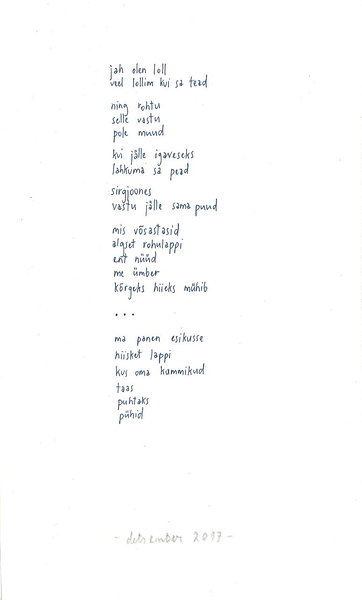 jah olen loll
veel lollim kui sa tead
ning rohtu
selle vastu
pole muud
kui jälle igaveseks
lahkuma sa pead
sirgjoones
vastu jälle sama puud
mis võsastasid
algset rohulappi
ent nüüd
me ümber
kõrgeks hiieks mühib
...
ma panen esikusse
hiisket lappi
kus oma kummikud
taas
puhtaks
pühid
- detsember 2017 -